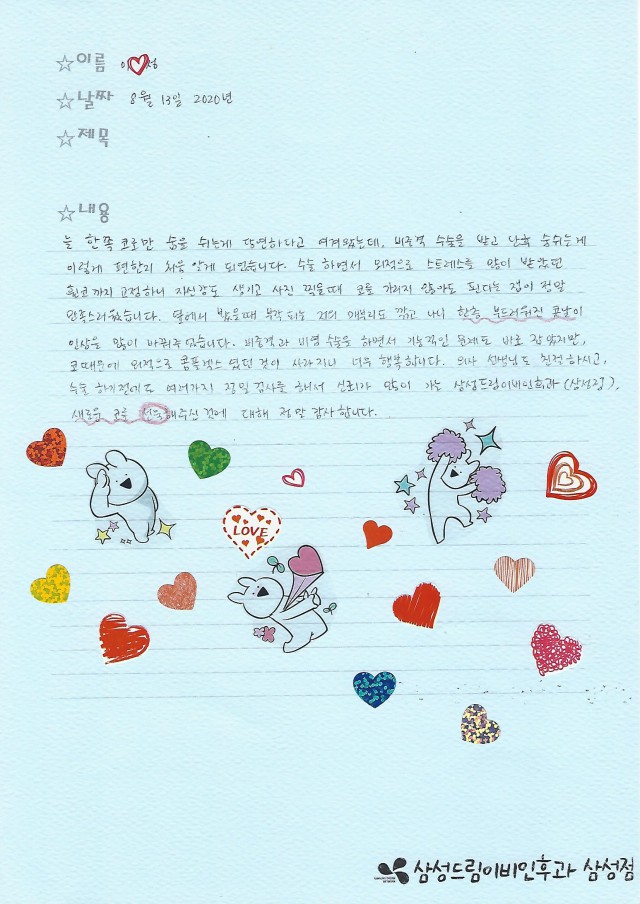 ☆이름 이 성
☆날짜 8월 13일 2020년
☆제목
☆내용
늘 한쪽 코로만 숨을 쉬는게 당연하다고 여겨왔는데, 비중격 수술을 받고 난 숨쉬는게
이렇게 편한지 처음 알게 되었습니다. 수술 하면서 외적으로 스트레스를 많이 받았던
휜코까지 교정하니 자신감도 생기고 사진 찍을때 코를 가리지 않아도 된다는 점이 정말
만족스러웠습니다. 옆에서 봤을때 부각되는 저의 매부리도 깎고 나니 한층 부드러워진 콧날이
인상을 많이 바꿔주었습니다. 비중격과 비염 수술을 하면서 기능적인 문제도 바로 잡았지만,
코때문에 외적으로 콤플렉스 였던 것이 사라지니 너무 행복합니다. 의사 선생님도 친절하시고,
수술 하기전에도 여러가지 정밀 검사를 해서 신뢰가 많이 가는 삼성드림이비인후과(삼성점),
새로운 코를 선물해주신 것에 대해 정말 감사합니다.
LOVE
삼성드림이비인후과 삼성점